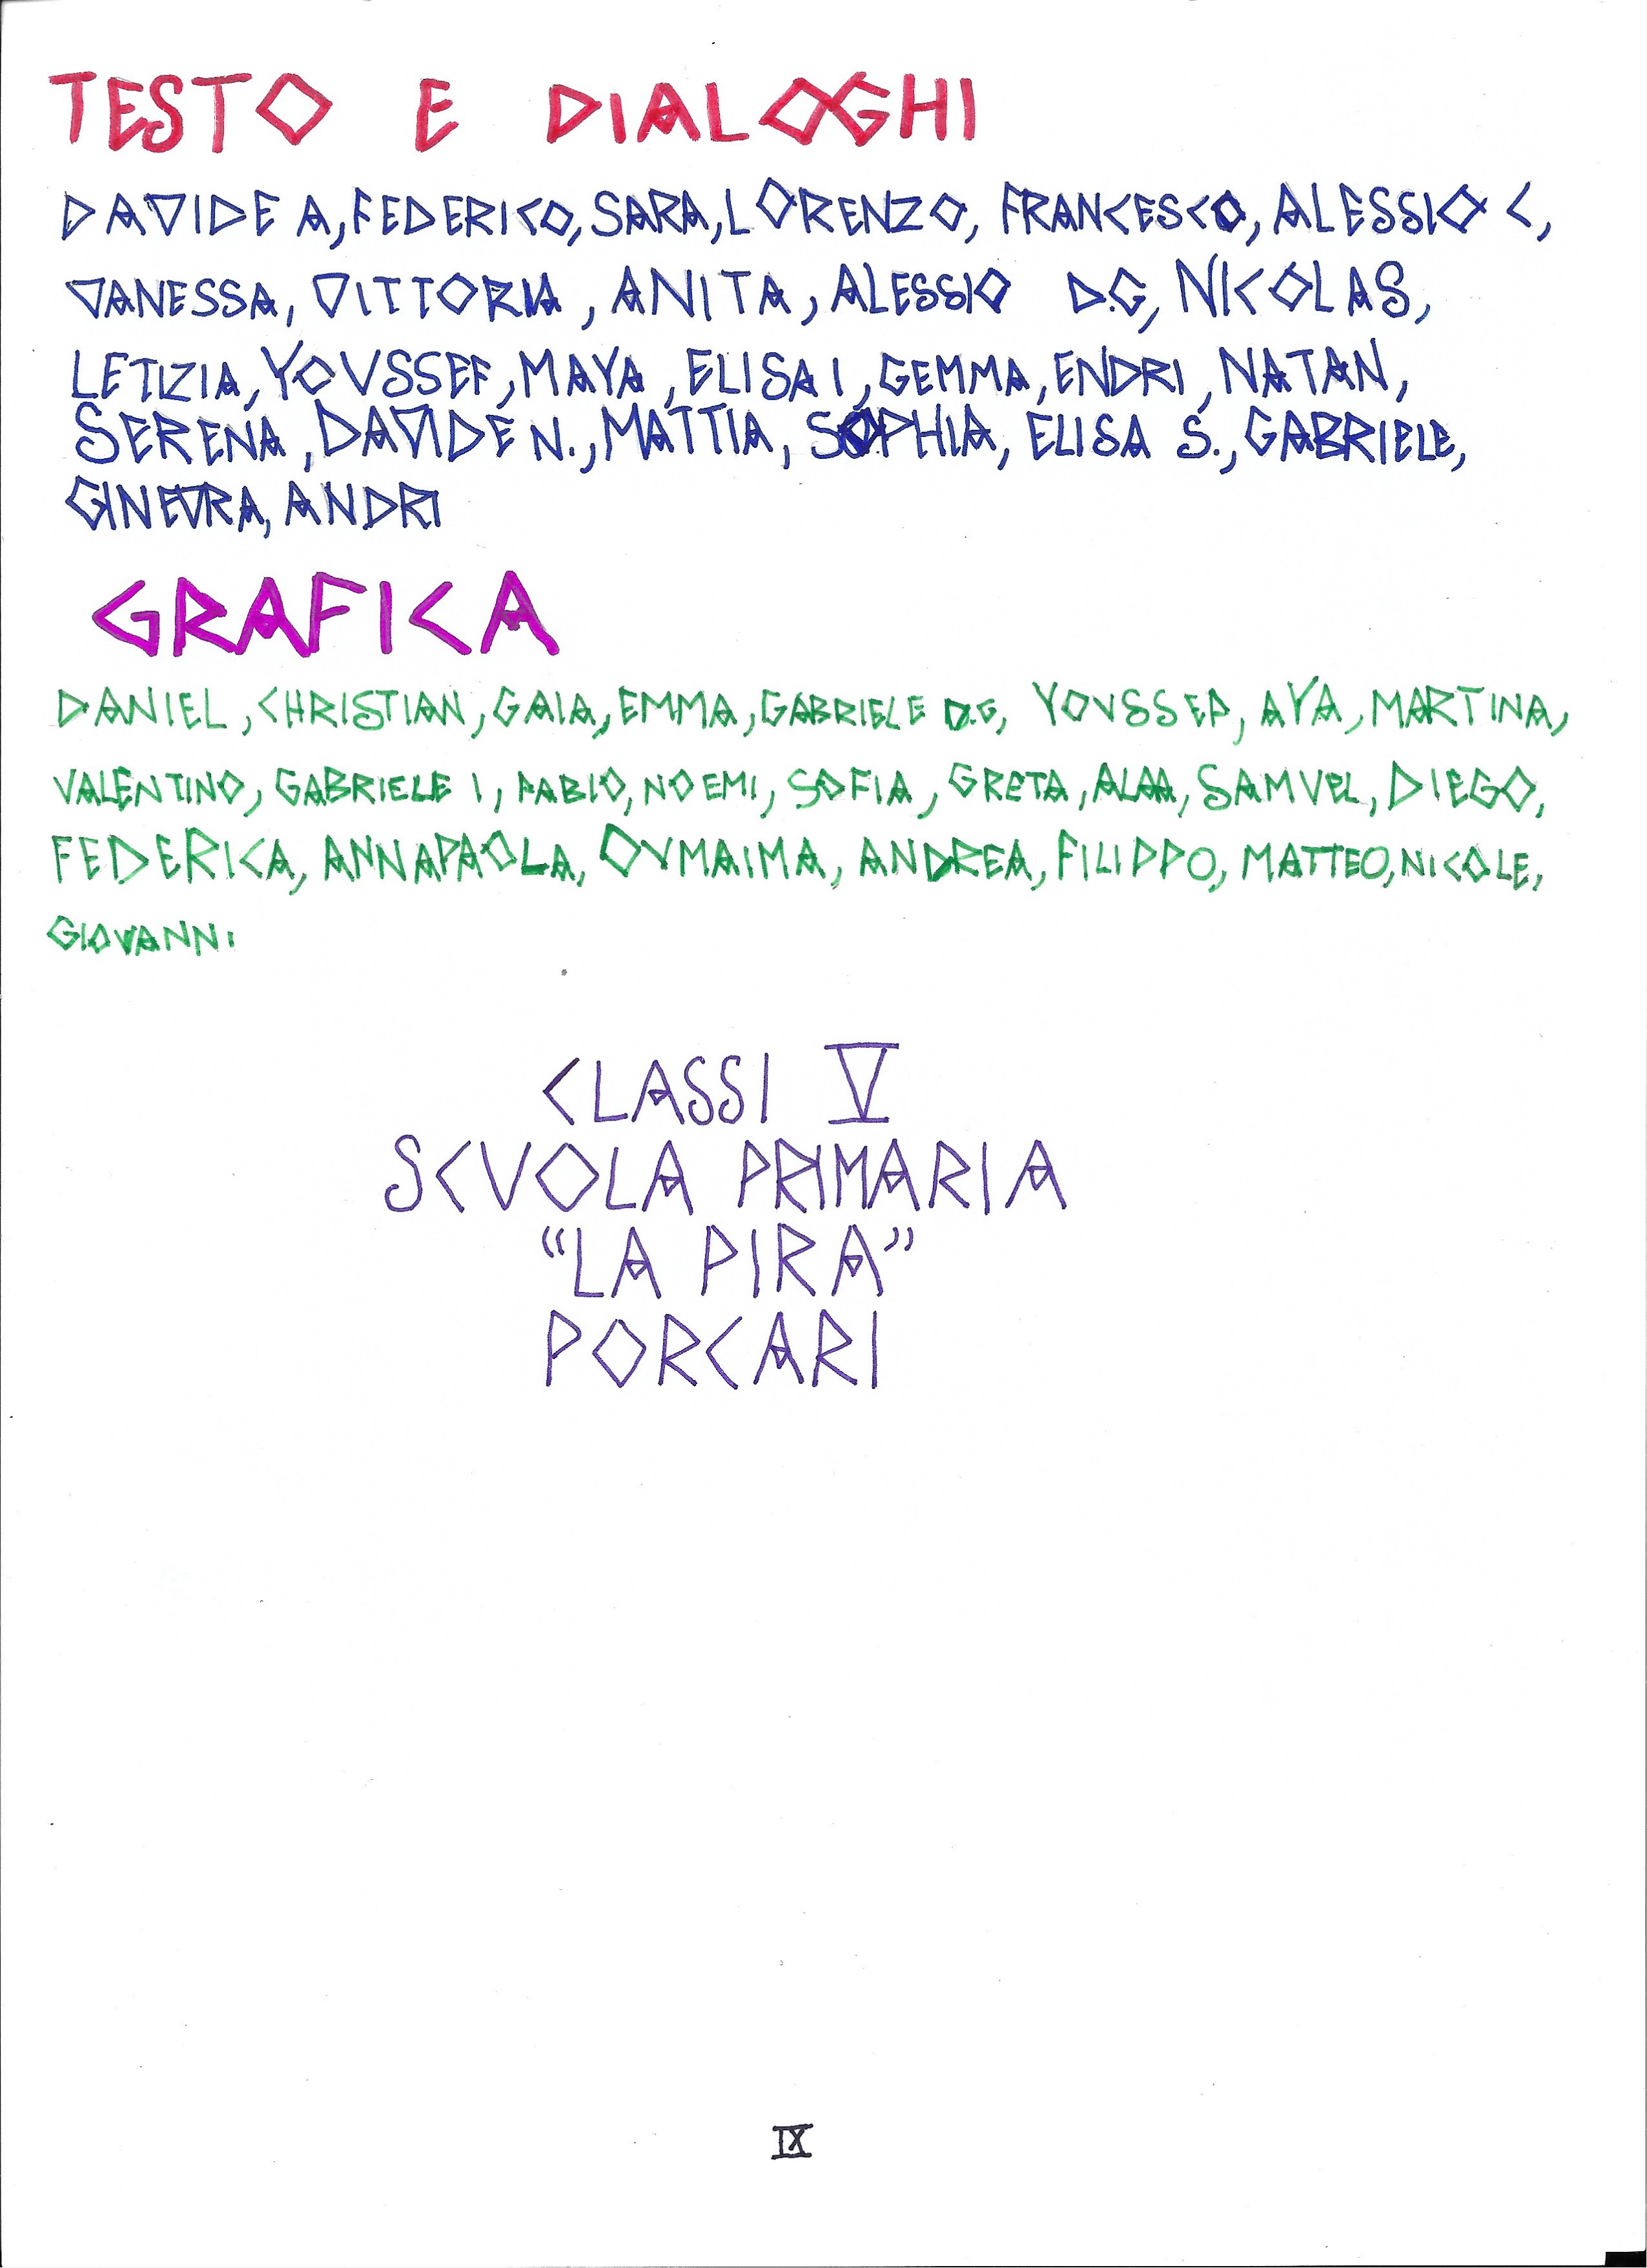 TESTO E DIALOGHI
DAVIDE A, FEDERICO, SARA, LORENZO, FRANCESCO, ALESSIO C,
VANESSA, VITTORIA, ANITA, ALESSIO D.G, NICOLAS,
LETIZIA, YOVSSEF, MAYA, ELISA I, GEMMA, ENDRI, NATAN,
SERENA, DAVIDE N., MATTIA, SOPHIA, ELISA S., GABRIELE,
GINEVRA, ANDRI
GRAFICA
DANIEL, CHRISTIAN, GAIA, EMMA, GABRIELE D.G, YOVSSEF, AYA, MARTINA,
VALENTINO, GABRIELE I, FABIO, NOEMI, SOFIA, GRETA, ALAA, SAMVEL, DIEGO,
FEDERICA, ANNAPAOLA, OVMAIMA, ANDREA, FILIPPO, MATTEO, NICOLE,
GIOVANNI
CLASSI V
SCVOLA PRIMARIA
“LA PIRA”
PORCARI
IX